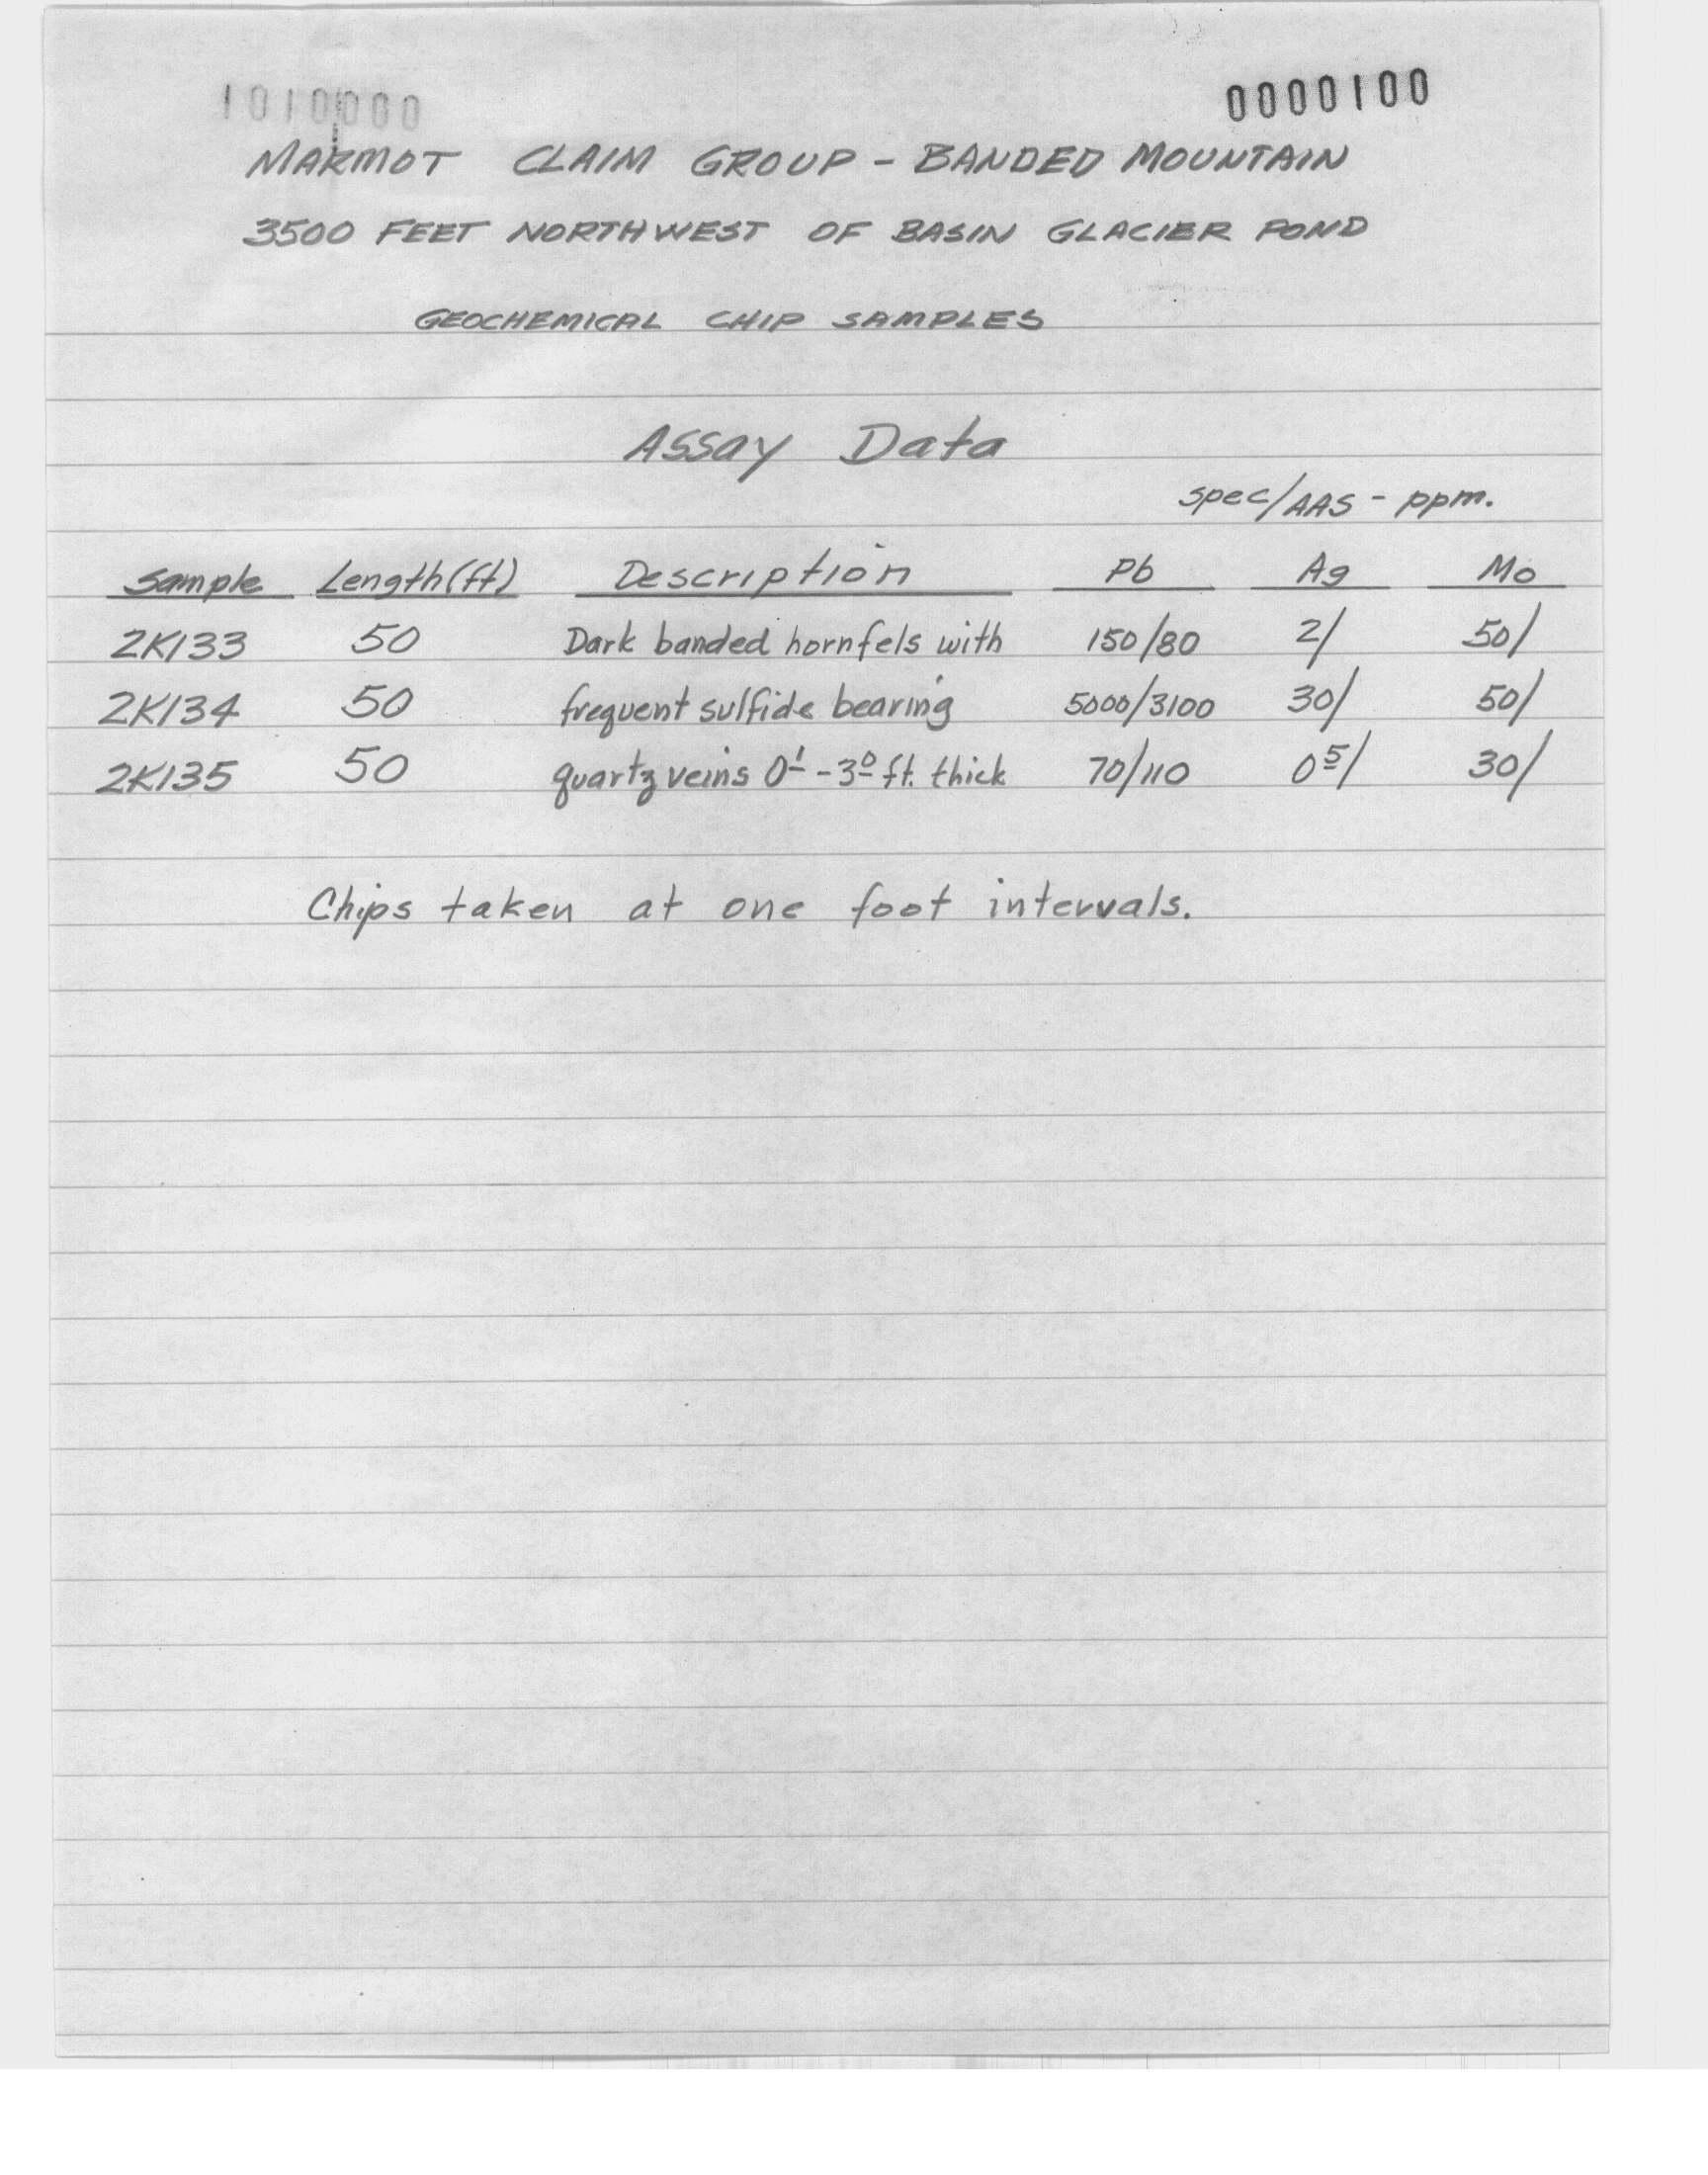 1010000
0000100
MARMOT CLAIM GROUP - BANDED MOUNTAIN
3500 FEET NORTHWEST OF BASIN GLACIER POND
GEOCHEMICAL CHIP SAMPLES
Assay Data
spec/AAS - ppm.
Sample Length (ft) Description Pb Ag Mo
2K133 50 Dark banded hornfels with 150/80 2/ 50/
2K134 50 frequent sulfide bearing 5000/3100 30/ 50/
2K135 50 quartz veins 0¹ - 3⁰ ft. thick 70/110 0⁵/ 30/
Chips taken at one foot intervals.